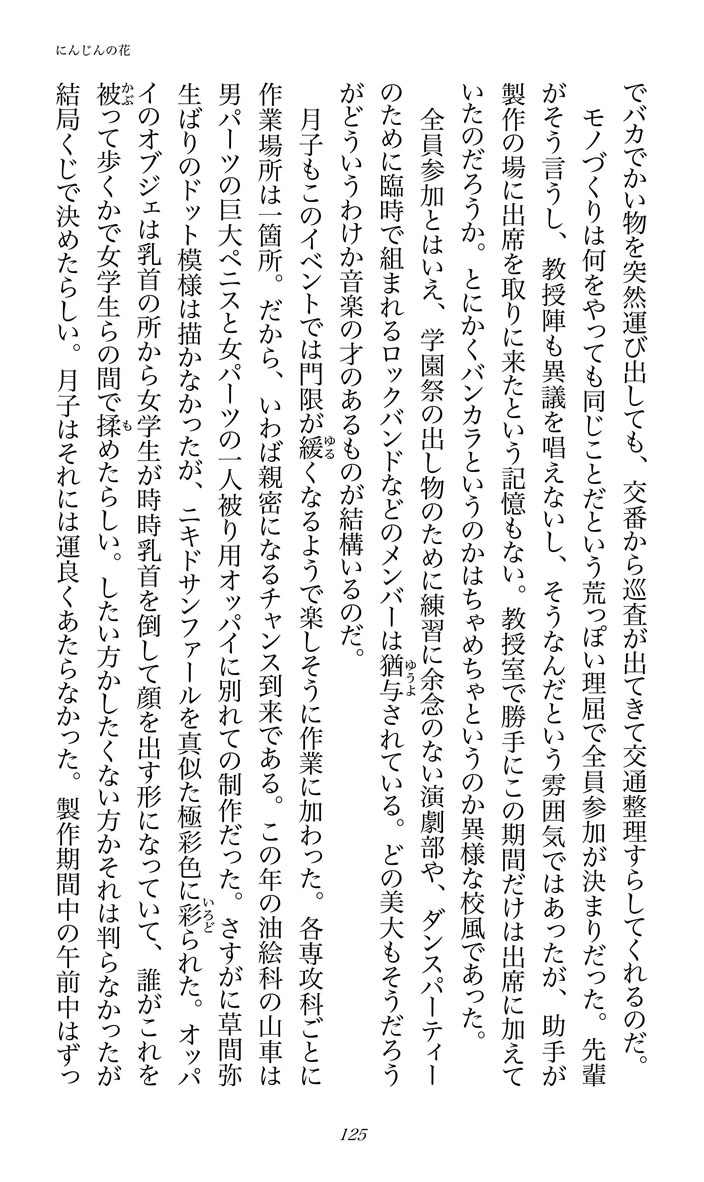 にんじんの花
でバカでかい物を突然運び出しても、交番から巡査が出てきて交通整理すらしてくれるのだ。
モノづくりは何をやっても同じことだという荒っぽい理屈で全員参加が決まりだった。先輩
がそう言うし、教授陣も異議を唱えないし、そうなんだという雰囲気ではあったが、助手が
製作の場に出席を取りに来たという記憶もない。教授室で勝手にこの期間だけは出席に加えて
いたのだろうか。とにかくバンカラというのかはちゃめちゃというのか異様な校風であった。
全員参加とはいえ、学園祭の出し物のために練習に余念のない演劇部や、ダンスパーティー
のために臨時で組まれるロックバンドなどのメンバーは猶与ゆうよされている。どの美大もそうだろう
がどういうわけか音楽の才のあるものが結構いるのだ。
月子もこのイベントでは門限が緩ゆるくなるようで楽しそうに作業に加わった。各専攻科ごとに
作業場所は一箇所。だから、いわば親密になるチャンス到来である。この年の油絵科の山車は
男パーツの巨大ペニスと女パーツの一人被り用オッパイに別れての制作だった。さすがに草間弥
生ばりのドット模様は描かなかったが、ニキドサンファールを真似た極彩色に彩いろどられた。オッパ
イのオブジェは乳首の所から女学生が時時乳首を倒して顔を出す形になっていて、誰がこれを
被かぶって歩くかで女学生らの間で揉もめたらしい。したい方かしたくない方かそれは判らなかったが
結局くじで決めたらしい。月子はそれには運良くあたらなかった。製作期間中の午前中はずっ
125